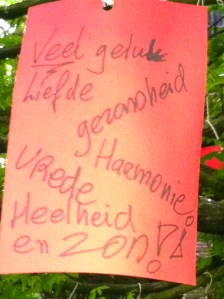 Veel geluk
Liefde
gezondheid
Harmonie!
Vrede
Heelheid
en zon!